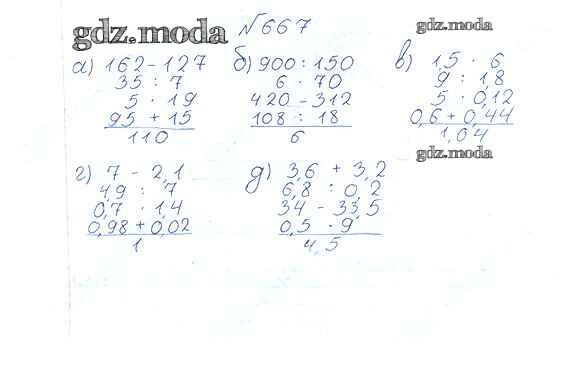 gdz.moda
№667
gdz.moda
а) 162 - 127
35 : 7
5 · 19
95 + 15
110
б) 900 : 150
6 · 70
420 - 312
108 : 18
6
в) 1,5 · 6
9 : 1,8
5 · 0,12
0,6 + 0,44
1,04
gdz.moda
г) 7 - 2,1
4,9 : 7
0,7 · 1,4
0,98 + 0,02
1
д) 3,6 + 3,2
6,8 : 0,2
34 - 33,5
0,5 · 9
4,5